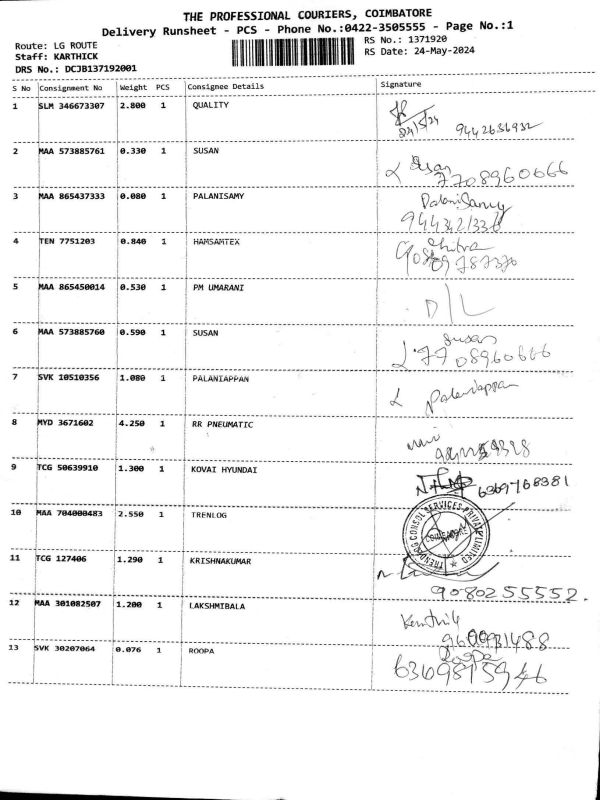 THE PROFESSIONAL COURIERS, COIMBATORE
Delivery Runsheet - PCS - Phone No.:0422-3505555 - Page No.:1
Route: LG ROUTE
RS No.: 1371920
Staff: KARTHICK
RS Date: 24-May-2024
DRS No.: DCJB137192001
S No Consignment No Weight PCS Consignee Details Signature
1 SLM 346673307 2.800 1 QUALITY
24/5/24 9442636932
2 MAA 573885761 0.330 1 SUSAN
Susan
7708960666
3 MAA 865437333 0.080 1 PALANISAMY PalaniSamy
4 TEN 7751203 0.840 1 HAMSAMTEX Chitra
5 MAA 865450014 0.530 1 PM UMARANI
D/L
6 MAA 573885760 0.590 1 SUSAN Susan
7708960666
7 SVK 10510356 1.080 1 PALANIAPPAN Palaniappan
8 MYD 3671602 4.250 1 RR PNEUMATIC
9 TCG 50639910 1.300 1 KOVAI HYUNDAI
6369768381
10 MAA 704000483 2.550 1 TRENLOG
COIMBATORE
11 TCG 127406 1.290 1 KRISHNAKUMAR
9080255552.
12 MAA 301082507 1.200 1 LAKSHMIBALA
13 SVK 30207064 0.076 1 ROOPA Roopa